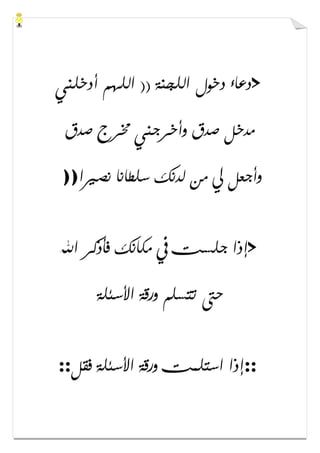 >دعاء دخول اللجنة (( اللهم أدخلني
مدخل صدق وأخرجني مخرج صدق
وأجعل لي من لدنك سلطانا نصيرا))
>إذا جلست في مكانك فأذكر الله
حتى تتسلم ورقة الأسئلة
::إذا استلمت ورقة الأسئلة فقل::